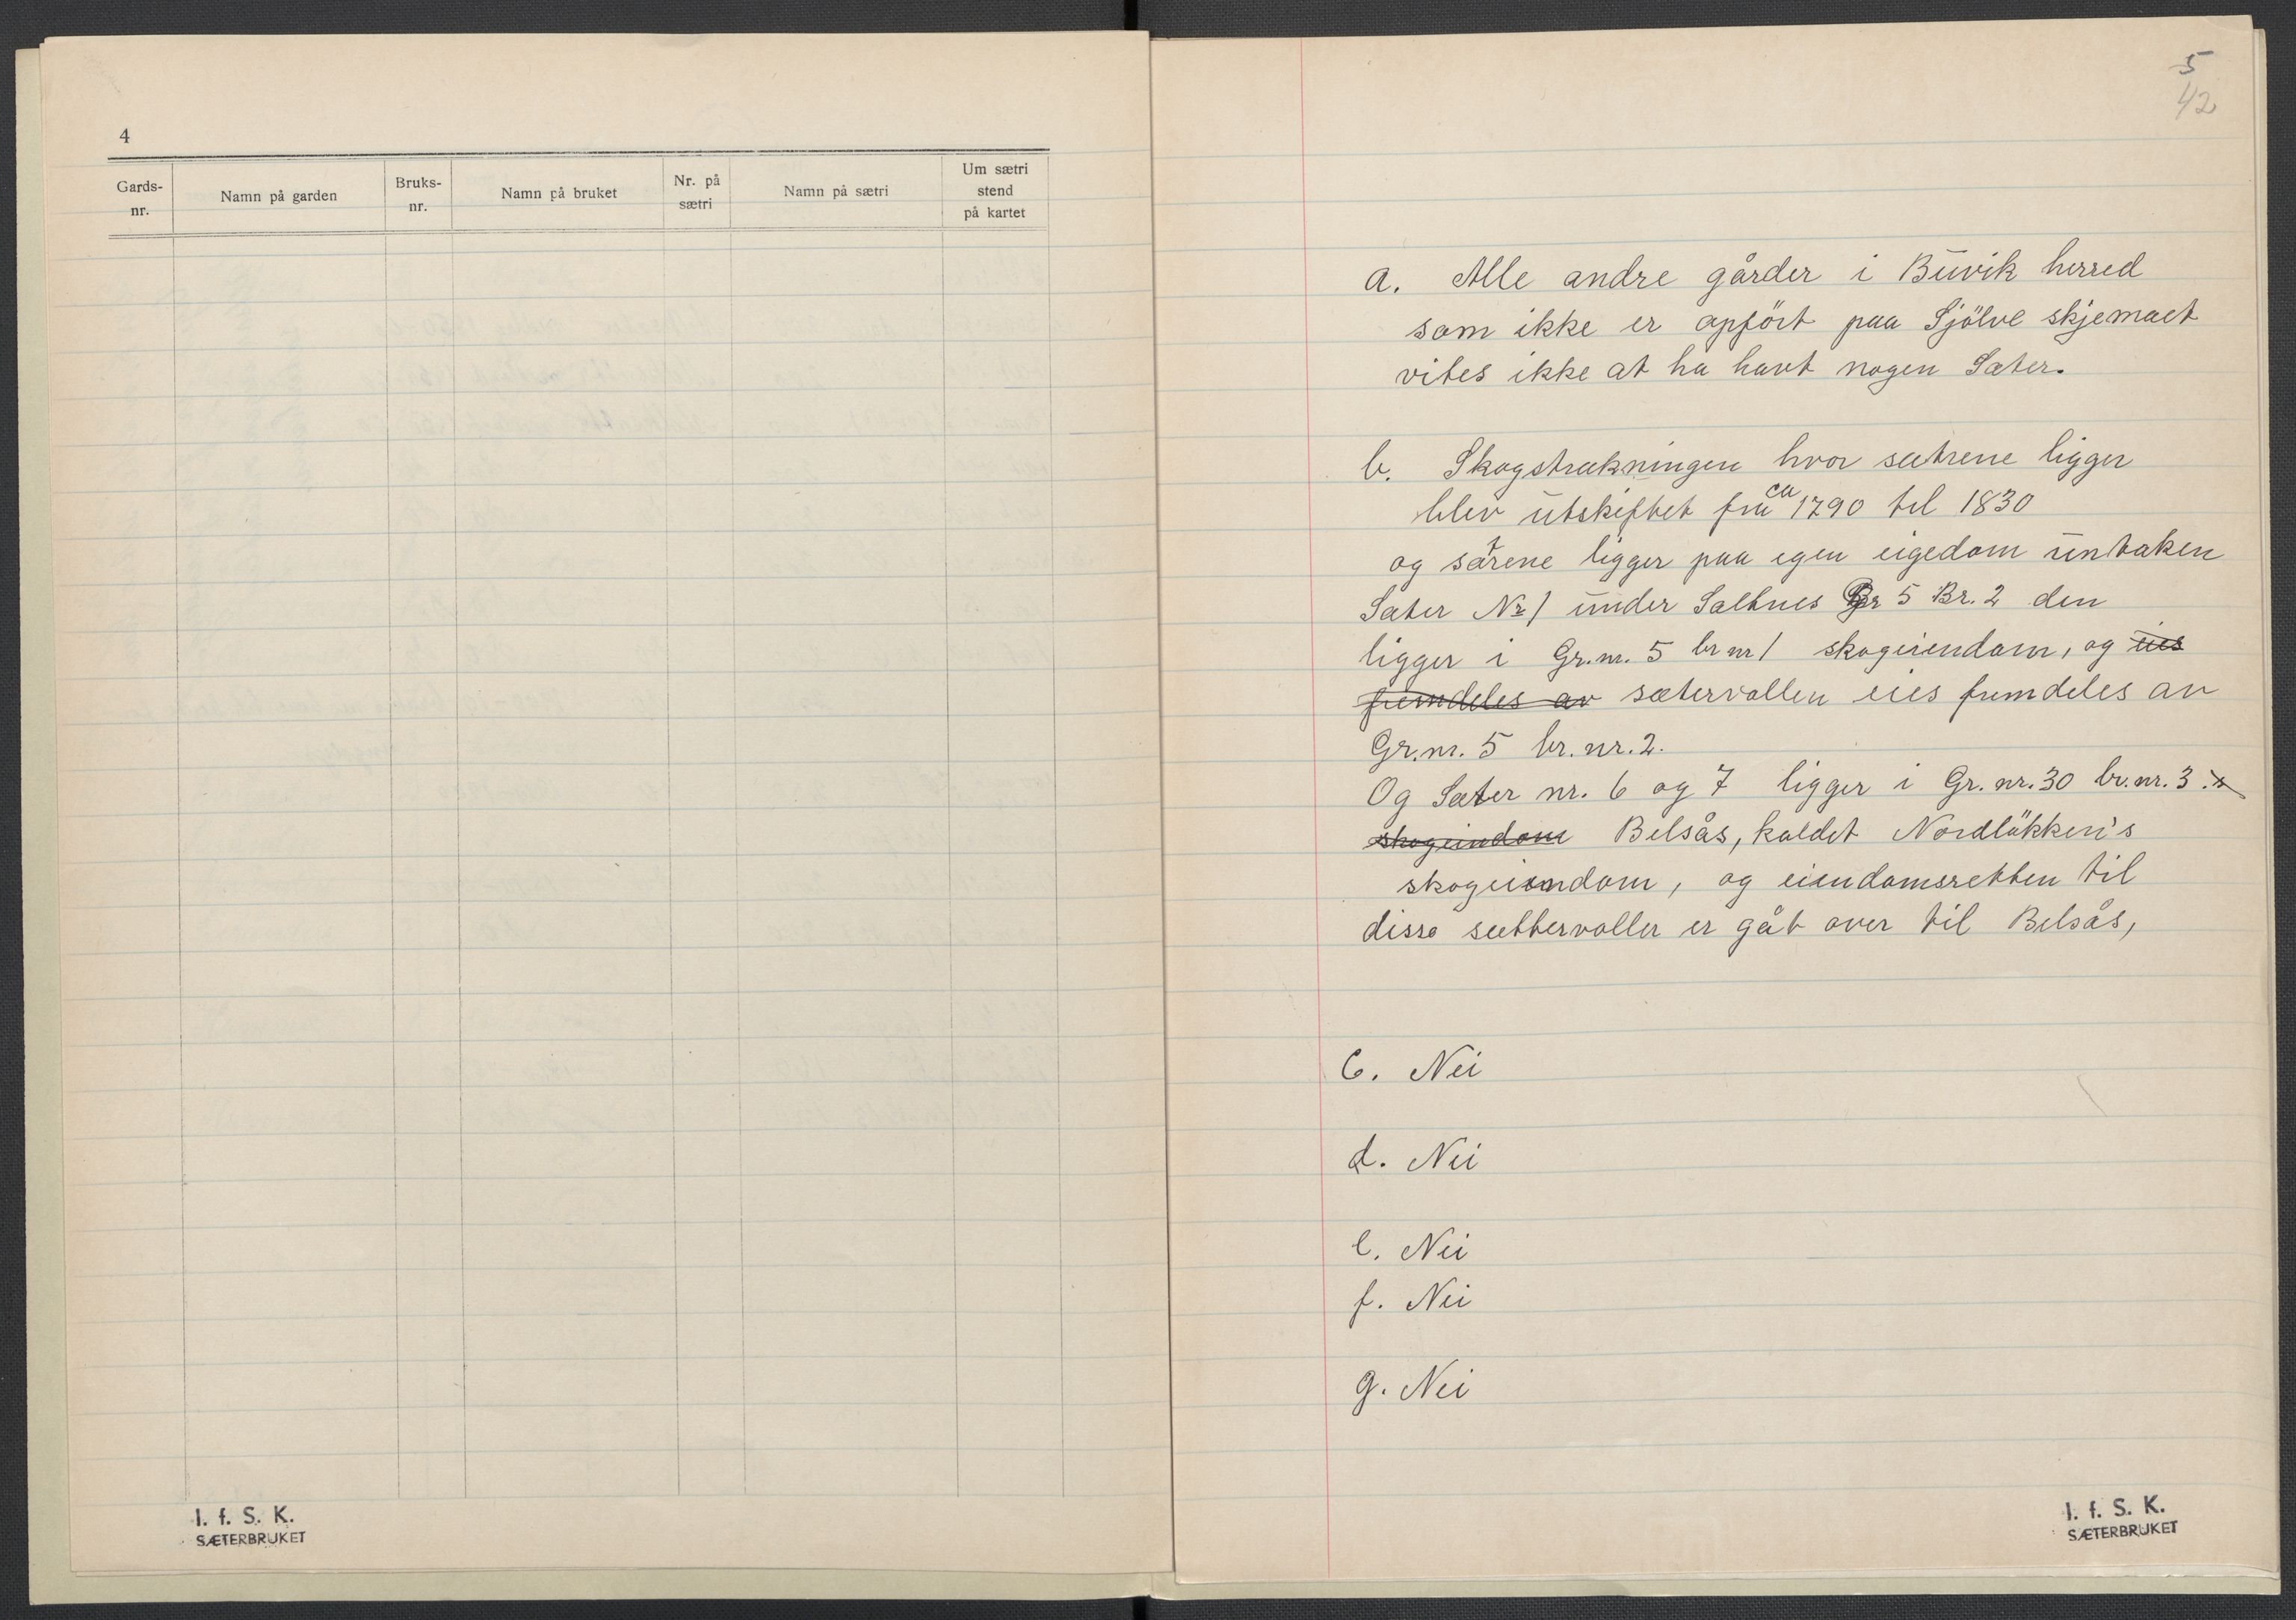 4
Gards-nr. Namn på garden Bruks-nr. Namn på bruket Nr. på sætri Namn på sætri Um sætri stend på kartet
I. f. S. K.
SÆTERBRUKET
5
42
a. Alle andre gårder i Buvik herred
som ikke er opført paa Sjölve skjemaet
vites ikke at ha havt nogen Sæter.
b. Skogstrækningen hvor sætrene ligger
blev utskiftet fra ca 1790 til 1830
og sætrene ligger paa egen eigedom untaken
Sæter Nr 1 under Saltnes Gr 5 Br. 2 den
ligger i Gr.nr. 5 br nr 1 skogeiendom, og eies
fremdeles av sætervollen eies fremdeles av
Gr.nr. 5 br. nr. 2.
Og Sæter nr. 6 og 7 ligger i Gr. nr. 30 br. nr. 3.
skogeindom Belsås, kaldet Nordløkken's
skogeiendom, og eiendomsretten til
disse sættervoller er gåt over til Belsås,
C. Nei
d. Nei
e. Nei
f. Nei
g. Nei
I. f. S. K.
SÆTERBRUKET